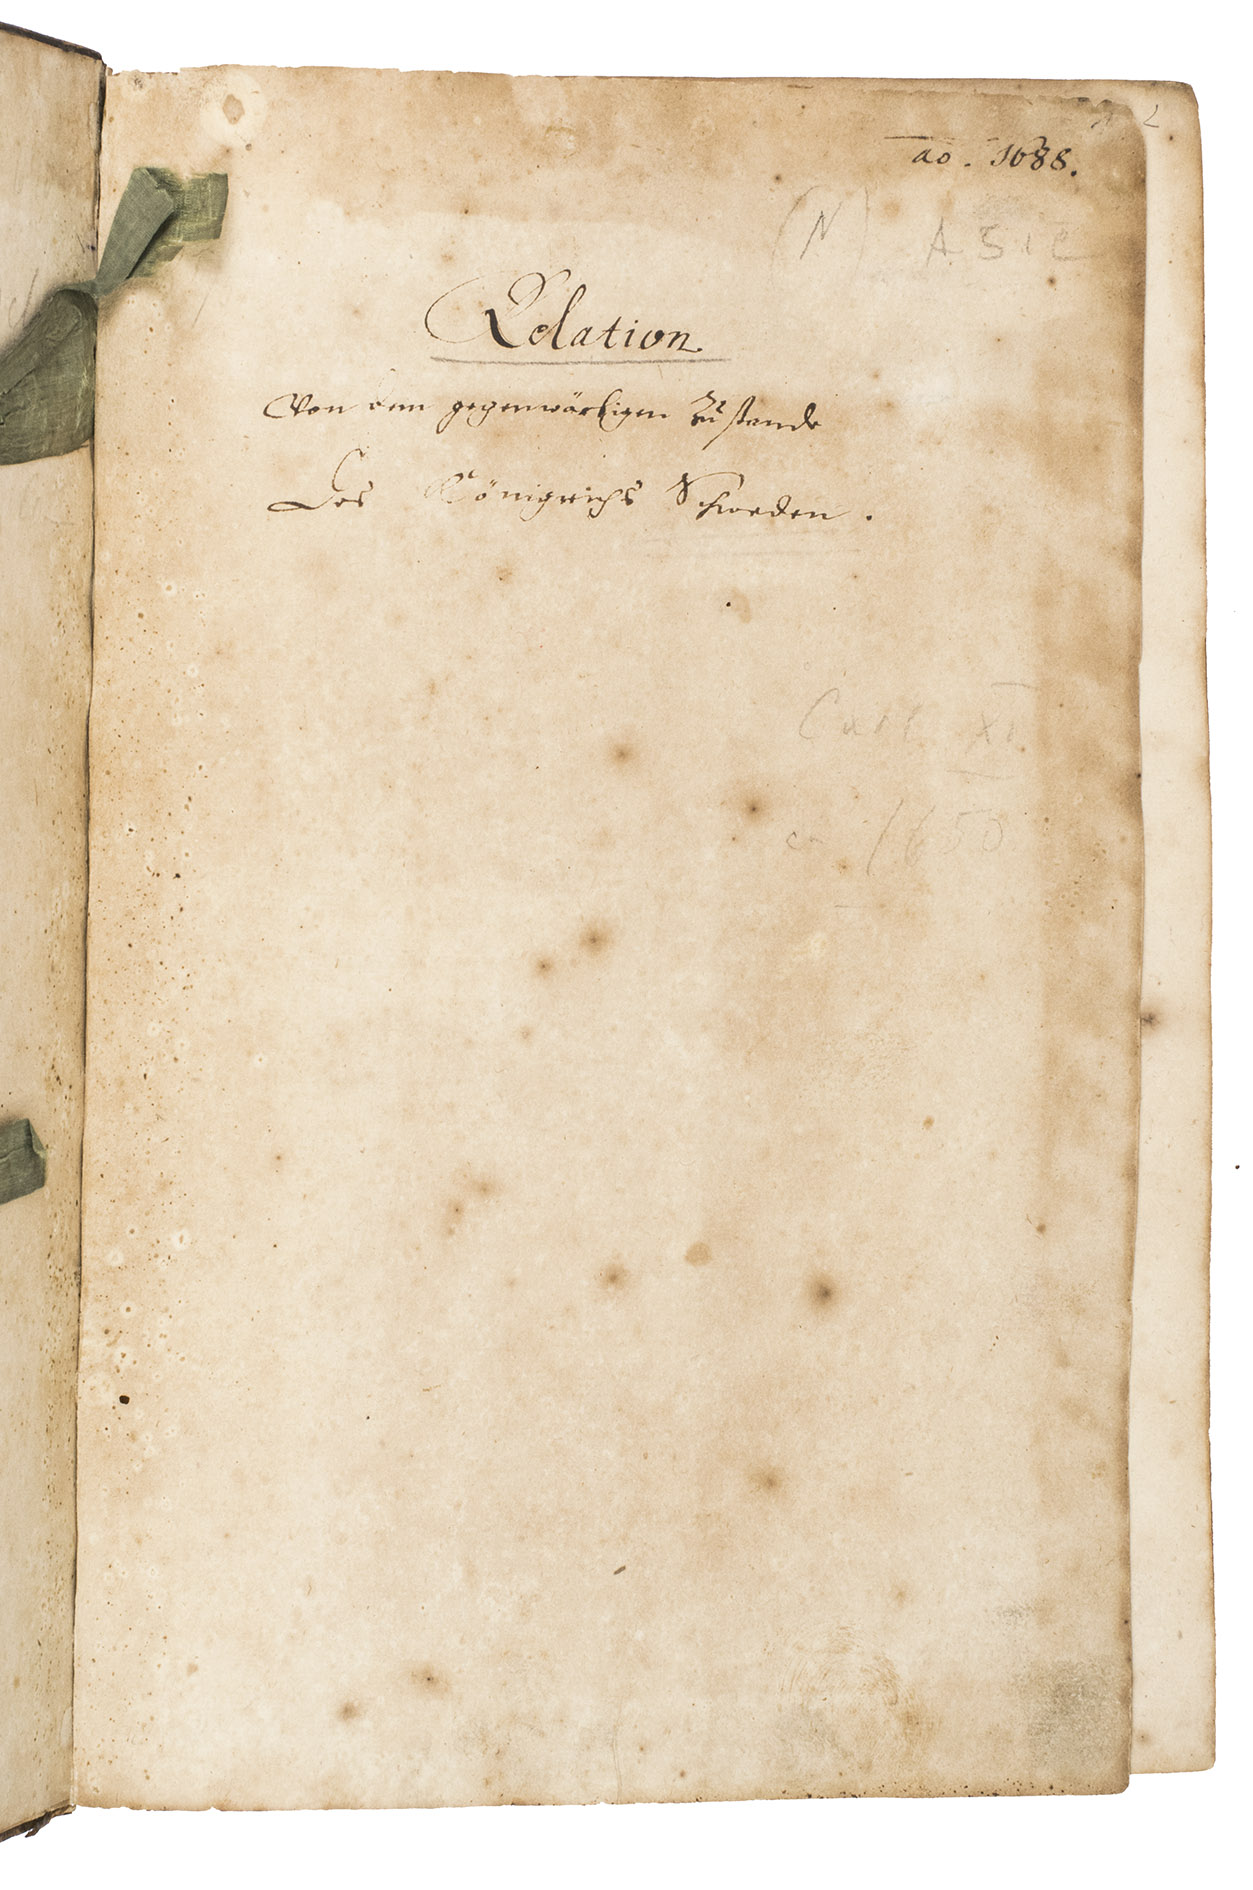 ao. 1688.
(N)
Relation.
Von dem gegenwärtigen Zustande
Des Königreichs Schweden.
Carl XI
ca 1650